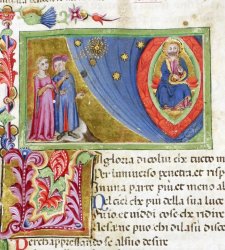 La gloria di colui che tutto m
Per luniuerso penetra et risp
In una parte piu et meno al
Nel ciel che piu della sua luce
Fu io et uidi cose che ridire
Ne sa ne puo chi di la su disce
Perche appressando se al suo desire